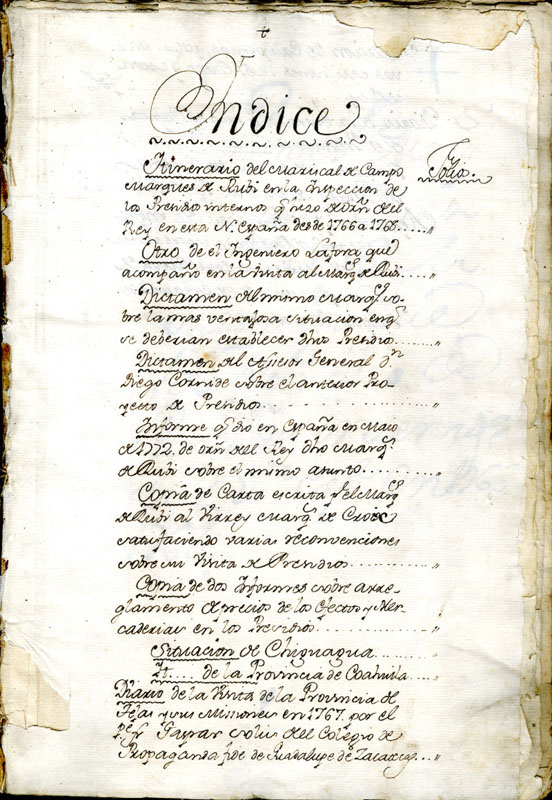 Indice
Folio.
Itinerario del Mariscal de Campo
Marques de Rubi en la Inspeccion de
los Presidios internos q̃ hizo de orñ del
Rey en esta N. España desde 1766 a 1768.....,,
Otro de el Ingeniero Lafora que
acompaño en la Visita al Marq.s de Rubi..,,
Dictamen del mismo Marq.s so-
bre la mas ventajosa situacion en q̃
se deberian establecer dhos Presidios.......,,
Dictamen del Asesor General d.n
Diego Cornide sobre el anterior Pro-
yecto de Presidios.......................,,
Informe q̃ dió en España en Maio
de 1772. de orñ del Rey dho Marq.s
de Rubi sobre el mismo asunto.........,,
Copia de Carta escrita p.r el Marq.s
de Rubi al Virrey Marq.s de Croix
satisfaciendo varias reconvenciones
sobre su Visita de Presidios..........,,
Copia de dos Informes sobre arre-
glamento de precios de los efectos y Mer-
caderias en los Presidios.............,,
Situacion de Chiguagua............,,
It.... de la Provincia de Coahuila..,,
Diario de la Visita de la Provincia de
Tejas y sus Misiones en 1767. por el
P. Fr. Gaspar Solis del Colegio de
Propaganda fide de Guadalupe de Zacatecas...,,